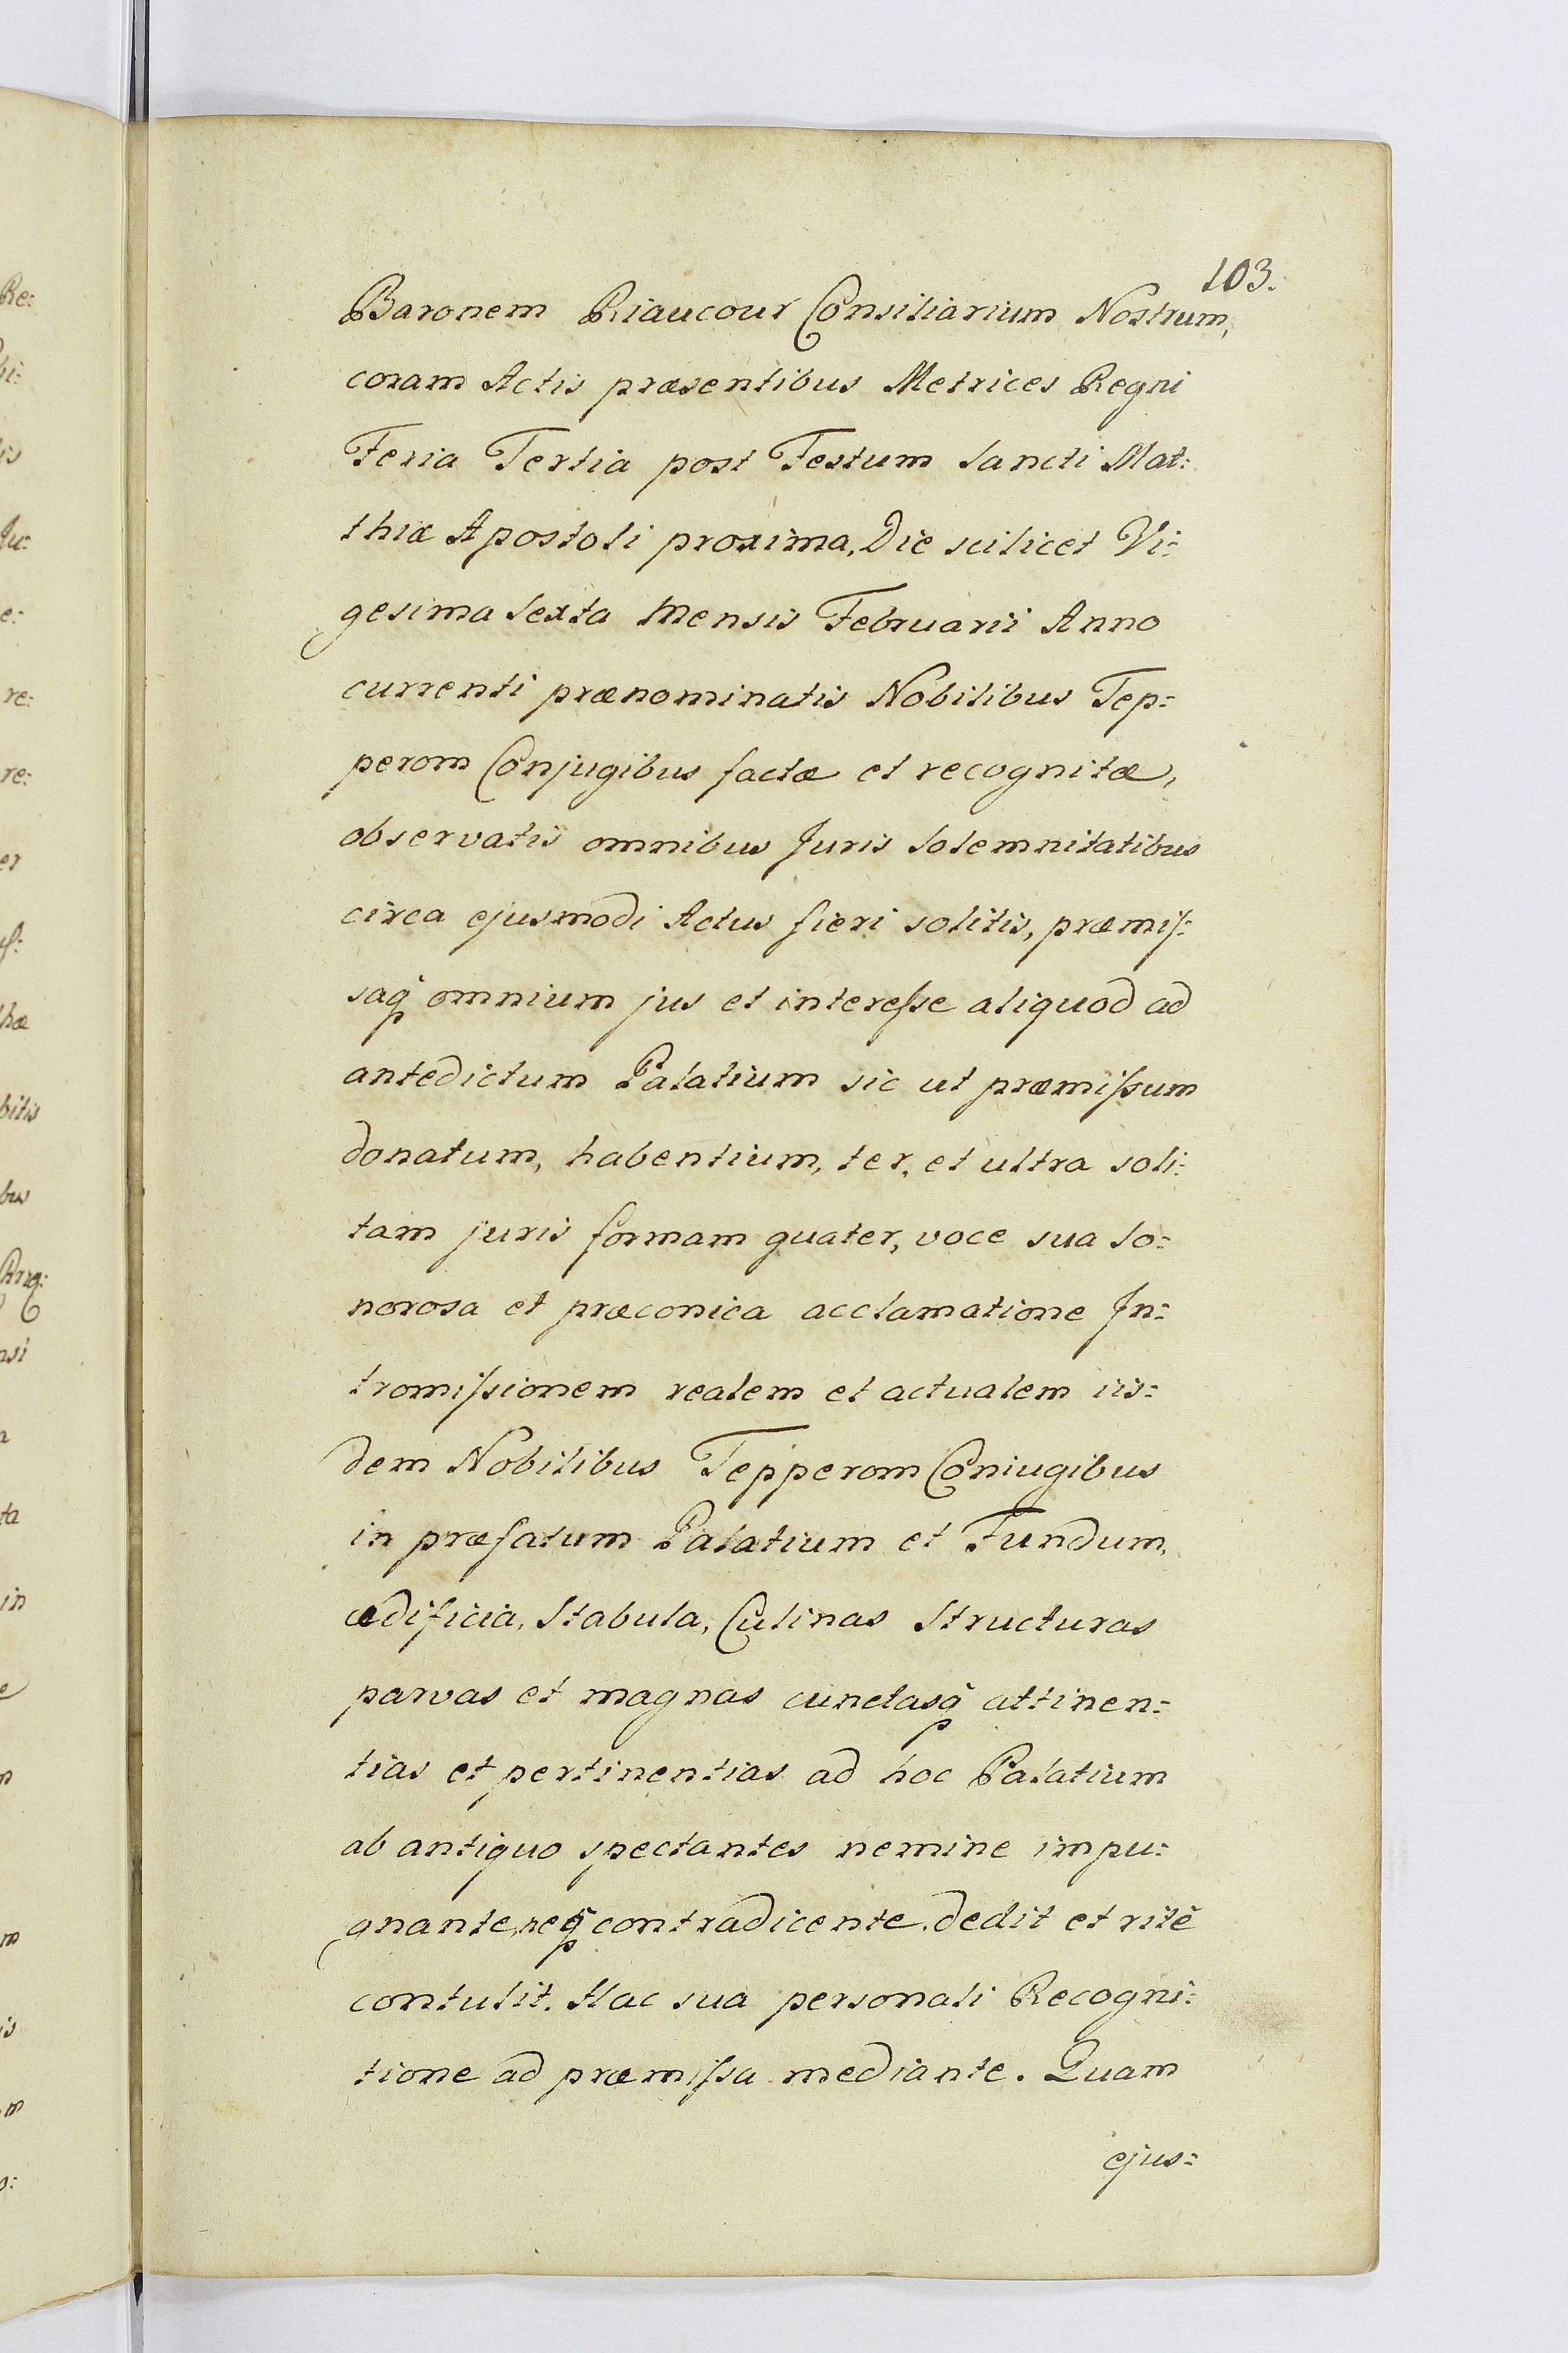 103.
Baronem Riaucour Consiliarium Nostrum,
coram Actis præsentibus Metrices Regni
Feria Tertia post Festum Sancti Mat:
thiæ Apostoli proxima, Die scilicet Vi:
gesima Sexta Mensis Februarii Anno
currenti prænominatis Nobilibus Tep:
perom Conjugibus factæ et recognitæ,
observatis omnibus Juris Solemnitatibus
circa ejusmodi Actus fieri solitis, præmis:
saq̃ omnium jus et interesse aliquod ad
antedictum Palatium sic ut præmissum
donatum, habentium, ter, et ultra soli:
tam juris formam quater, voce sua So:
norosa et præconica acclamatione In:
tromissionem realem et actualem iis:
dem Nobilibus Tepperom Coniugibus
in præfatum Palatium et Fundum,
ædificia, Stabula, Culinas Structuras
parvas et magnas cunctasq̃ attinen:
tias et pertinentias ad hoc Palatium
ab antiquo spectantes nemine impu:
gnante, neq̃ contradicente. dedit et ritè
contulit. Hac sua personali Recogni:
tione ad præmissa mediante. Quam
ejus:
Re:
bi:
is
Ju:
e:
re:
re:
er
hæ
bitis
bus
nsi
a
ta
in
e
m
is
m
o: